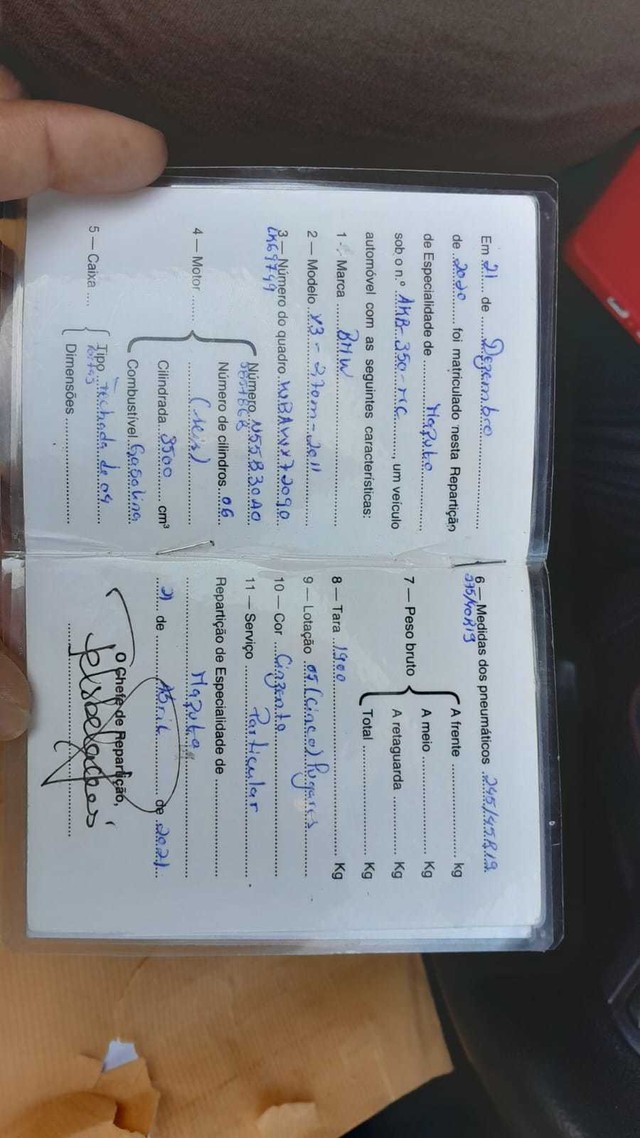 Em 21 de Dezembro
de 2020 foi matriculado nesta Repartição
de Especialidade de Maputo
sob o n.º AMB-350-MC, um veículo
automóvel com as seguintes características:
1 — Marca BMW
2 — Modelo X3 - 270m - 2011
3 — Número do quadro WBAWX72090
LK69749
4 — Motor
Número N55B30A0
Número de cilindros 06
(seis)
Cilindrada 3500 cm³
Combustível Gasolina
5 — Caixa
Tipo Fechada de 04
portas
Dimensões
6 — Medidas dos pneumáticos 245/45R19
275/40R19
7 — Peso bruto
A frente kg
A meio Kg
A retaguarda Kg
Total Kg
8 — Tara 1900 Kg
9 — Lotação 05 (Cinco) lugares
10 — Cor Cinzento
11 — Serviço Particular
Repartição de Especialidade de
Maputo
21 de Abril de 2021
O Chefe de Repartição,